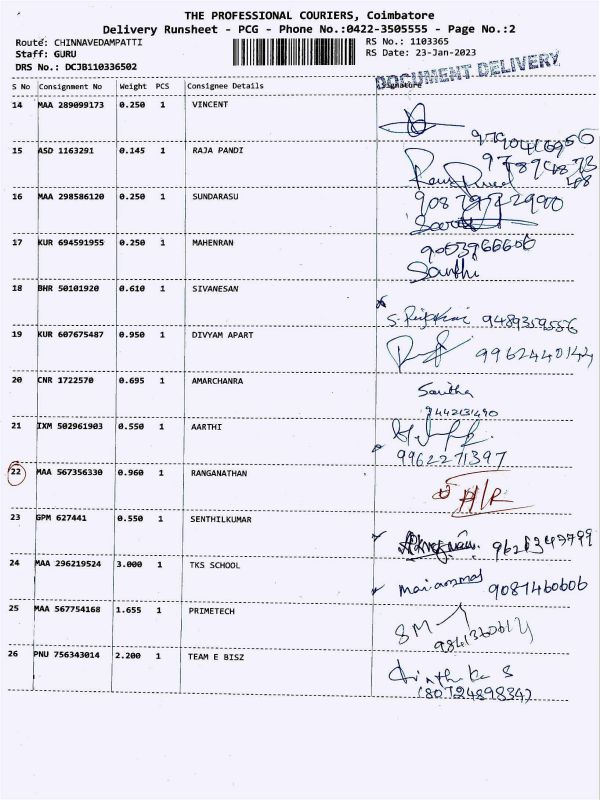 THE PROFESSIONAL COURIERS, Coimbatore
Delivery Runsheet - PCG - Phone No.:0422-3505555 - Page No.:2
Route: CHINNAVEDAMPATTI RS No.: 1103365
Staff: GURU RS Date: 23-Jan-2023
DRS No.: DCJB110336502
DOCUMENT DELIVERY
S No Consignment No Weight PCS Consignee Details Signature
14 MAA 289099173 0.250 1 VINCENT
15 ASD 1163291 0.145 1 RAJA PANDI
16 MAA 298586120 0.250 1 SUNDARASU
17 KUR 694591955 0.250 1 MAHENRAN
Santhi
18 BHR 50101920 0.610 1 SIVANESAN
9489359556
19 KUR 607675487 0.950 1 DIVYAM APART
9962440144
20 CNR 1722570 0.695 1 AMARCHANRA
Savitha
9442131490
21 IXM 502961903 0.550 1 AARTHI
9962271397
22 MAA 567356330 0.960 1 RANGANATHAN
23 GPM 627441 0.550 1 SENTHILKUMAR
24 MAA 296219524 3.000 1 TKS SCHOOL
Mariammal 9087460606
25 MAA 567754168 1.655 1 PRIMETECH
SM
26 PNU 756343014 2.200 1 TEAM E BISZ
(8072489834)